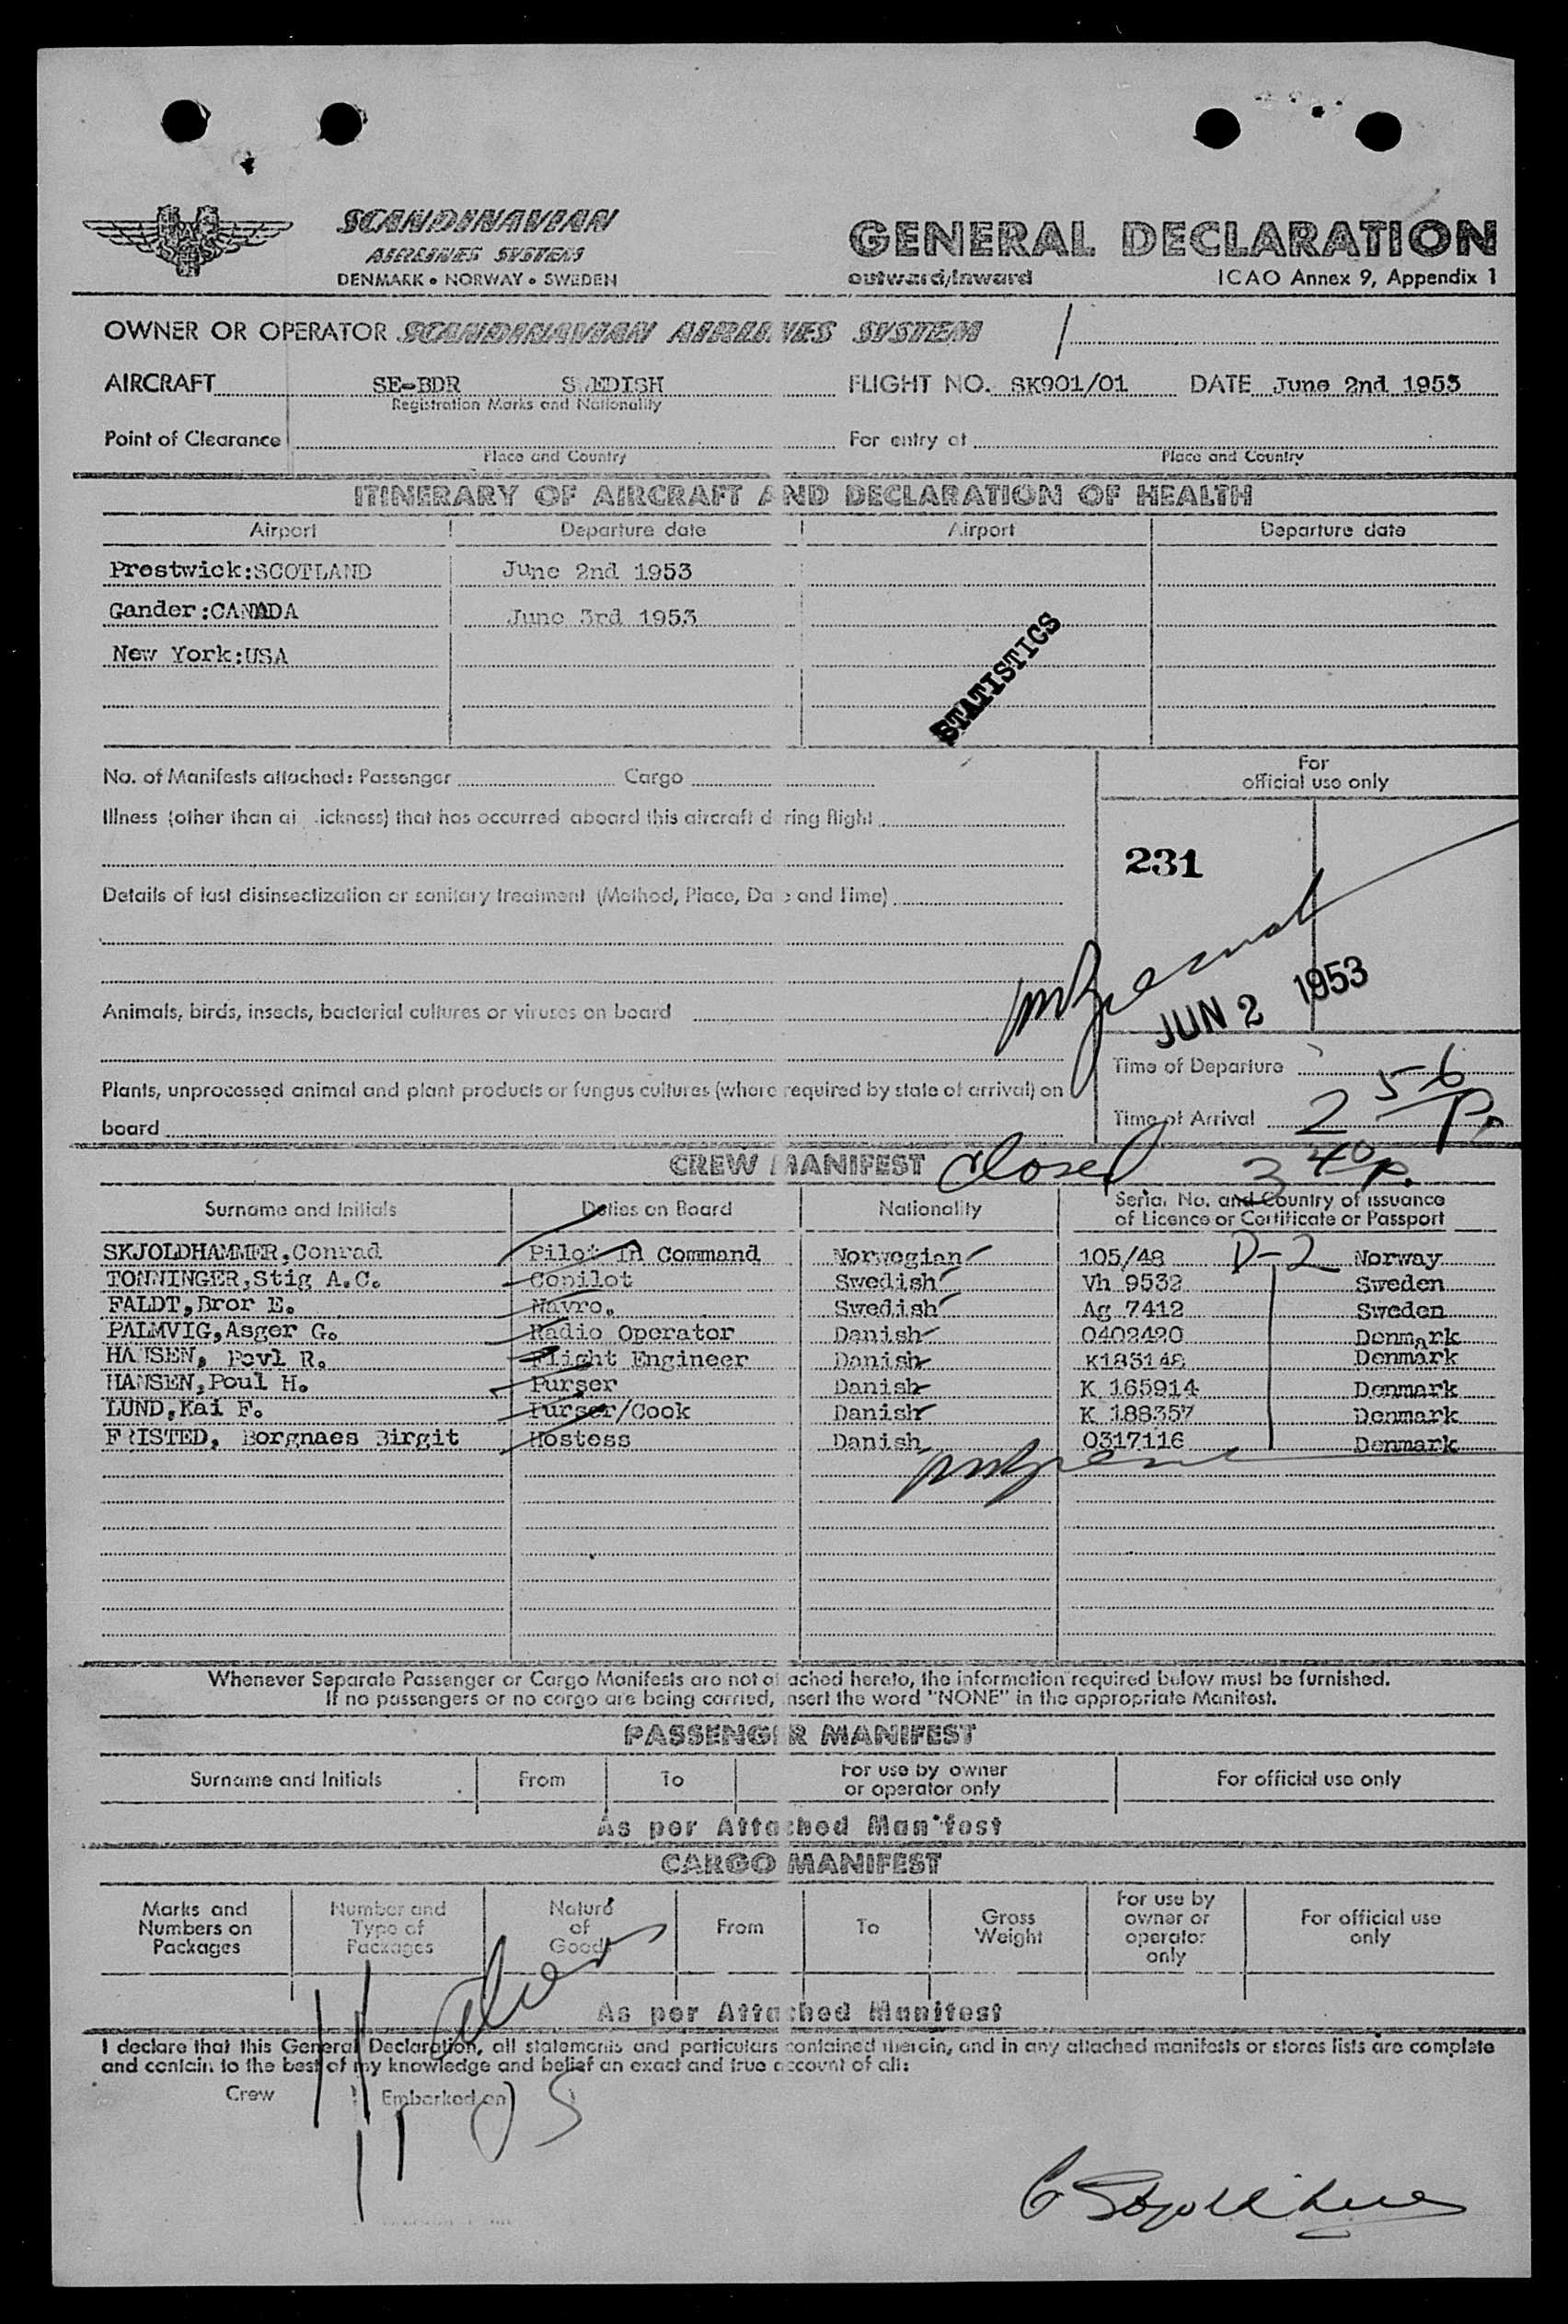 SCANDINAVIAN
AIRLINES SYSTEM
DENMARK • NORWAY • SWEDEN
GENERAL DECLARATION
outward/inward ICAO Annex 9, Appendix 1
OWNER OR OPERATOR SCANDINAVIAN AIRLINES SYSTEM
AIRCRAFT SE-BDR SWEDISH FLIGHT NO. SK901/01 DATE June 2nd 1953
Registration Marks and Nationality
Point of Clearance For entry at
Place and Country Place and Country
ITINERARY OF AIRCRAFT AND DECLARATION OF HEALTH
Airport Departure date Airport Departure date
Prestwick:SCOTLAND June 2nd 1953
Gander:CANADA June 3rd 1953
New York:USA
STATISTICS
No. of Manifests attached: Passenger Cargo
For
official use only
Illness (other than ai ickness) that has occurred aboard this aircraft d ring flight
231
Details of last disinsectization or sanitary treatment (Method, Place, Da e and Time)
JUN 2 1953
Animals, birds, insects, bacterial cultures or viruses on board
Time of Departure
Plants, unprocessed animal and plant products or fungus cultures (where required by state of arrival) on
board
Time of Arrival 2 56 P.
CREW MANIFEST closed 3 40 P.
Surname and Initials Duties on Board Nationality Serial No. and Country of issuance
of Licence or Certificate or Passport
SKJOLDHAMMER,Conrad Pilot in Command Norwegian 105/48 D-2 Norway
TONNINGER,Stig A.C. Copilot Swedish Vh 9532 Sweden
FALDT,Bror E. Navro. Swedish Ag 7412 Sweden
PALMVIG,Asger G. Radio Operator Danish 0402420 Denmark
HANSEN, Povl R. Flight Engineer Danish K183148 Denmark
HANSEN,Poul H. Purser Danish K 165914 Denmark
LUND,Kai F. Purser/Cook Danish K 188357 Denmark
FRISTED, Borgnaes Birgit Hostess Danish 0317116 Denmark
Whenever Separate Passenger or Cargo Manifests are not at ached hereto, the information required below must be furnished.
If no passengers or no cargo are being carried, insert the word "NONE" in the appropriate Manifest.
PASSENGER MANIFEST
Surname and Initials From To For use by owner
or operator only For official use only
As per Attached Manifest
CARGO MANIFEST
Marks and
Numbers on
Packages
Number and
Type of
Packages
Nature
of
Goods
From To Gross
Weight
For use by
owner or
operator
only
For official use
only
As per Attached Manifest
I declare that this General Declaration, all statements and particulars contained therein, and in any attached manifests or stores lists are complete
and contain to the best of my knowledge and belief an exact and true account of all:
Crew Embarked on